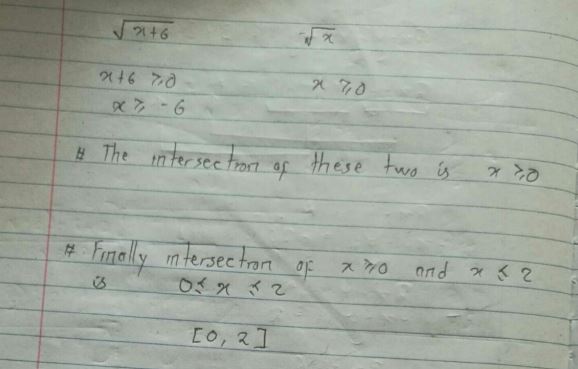 √x+6 -√x
x+6 ≥0 x ≥0
x ≥ -6
# The intersection of these two is x ≥0
# Finally intersection of x ≥0 and x ≤ 2
is 0≤ x ≤ 2
[0, 2]